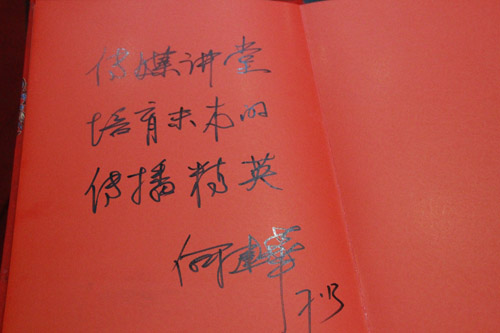 传媒讲堂
培育未来的
传播精英
何建华
7.13